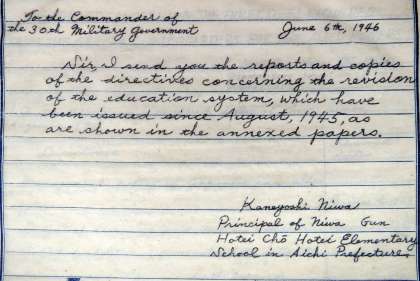 To the Commander of
the 30th Military Government
June 6th, 1946
Sir, I send you the reports and copies
of the directives concerning the revision
of the education system, which have
been issued since August, 1945, as
are shown in the annexed papers.
Kaneyoshi Niwa
Principal of Niwa Gun
Hotei Chō Hotei Elementary
School in Aichi Prefecture.